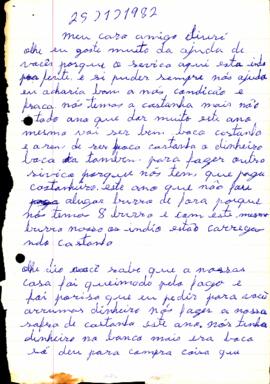 25/1/1982
Meu caro amigo
olhe eu gosto muito da ajuda de
vocês porque o serviço aqui esta indo
pra frente e si puder sempre nós ajuda
eu acharia bom a más condicão e
fraca nós temos a castanha mais não
todo ano que der muito este ano
mesmo vai ser bem boca castanha
e aren de ser boca castanha o dinheiro
boca da tambem para fager outro
serviço porque nós tem que paga
castanheiro este ano que não
alugar burro de fora porque
nós temos 8 burro e com este mesmo
burro nosso os undio estão carrega
ndo castanha
olhe você sabe que a nossas
casa foi queimado pelo fago e
foi porisso que eu pedir para você
arrumos dinheiro nós fager a nossa
safra de castanha este ano, nós tinha
dinheiro no banco mais era boca
só deu para compra coisa que